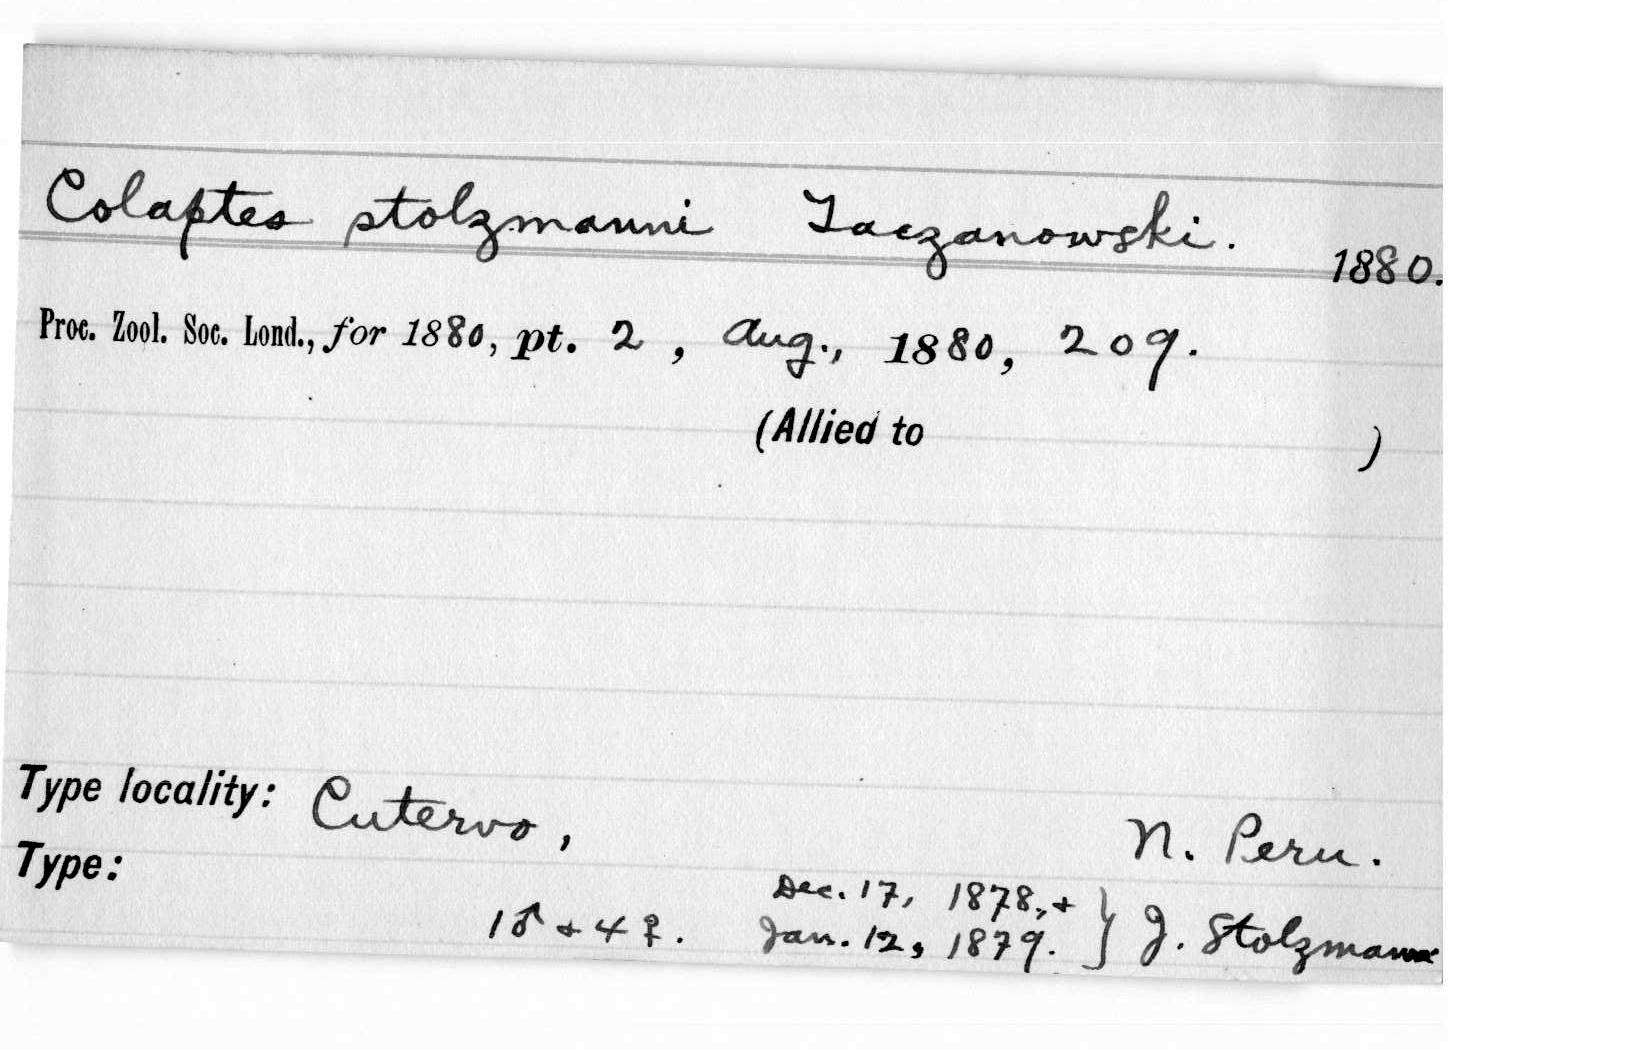 Colaptes stolzmanni Taczanowski.
1880.
Proc. Zool. Soc. Lond., for 1880, pt. 2, Aug., 1880, 209.
(Allied to )
Type locality: Cutervo, N. Peru.
Type:
1♂ + 4♀. Dec. 17, 1878, + Jan. 12, 1879. } J. Stolzmann